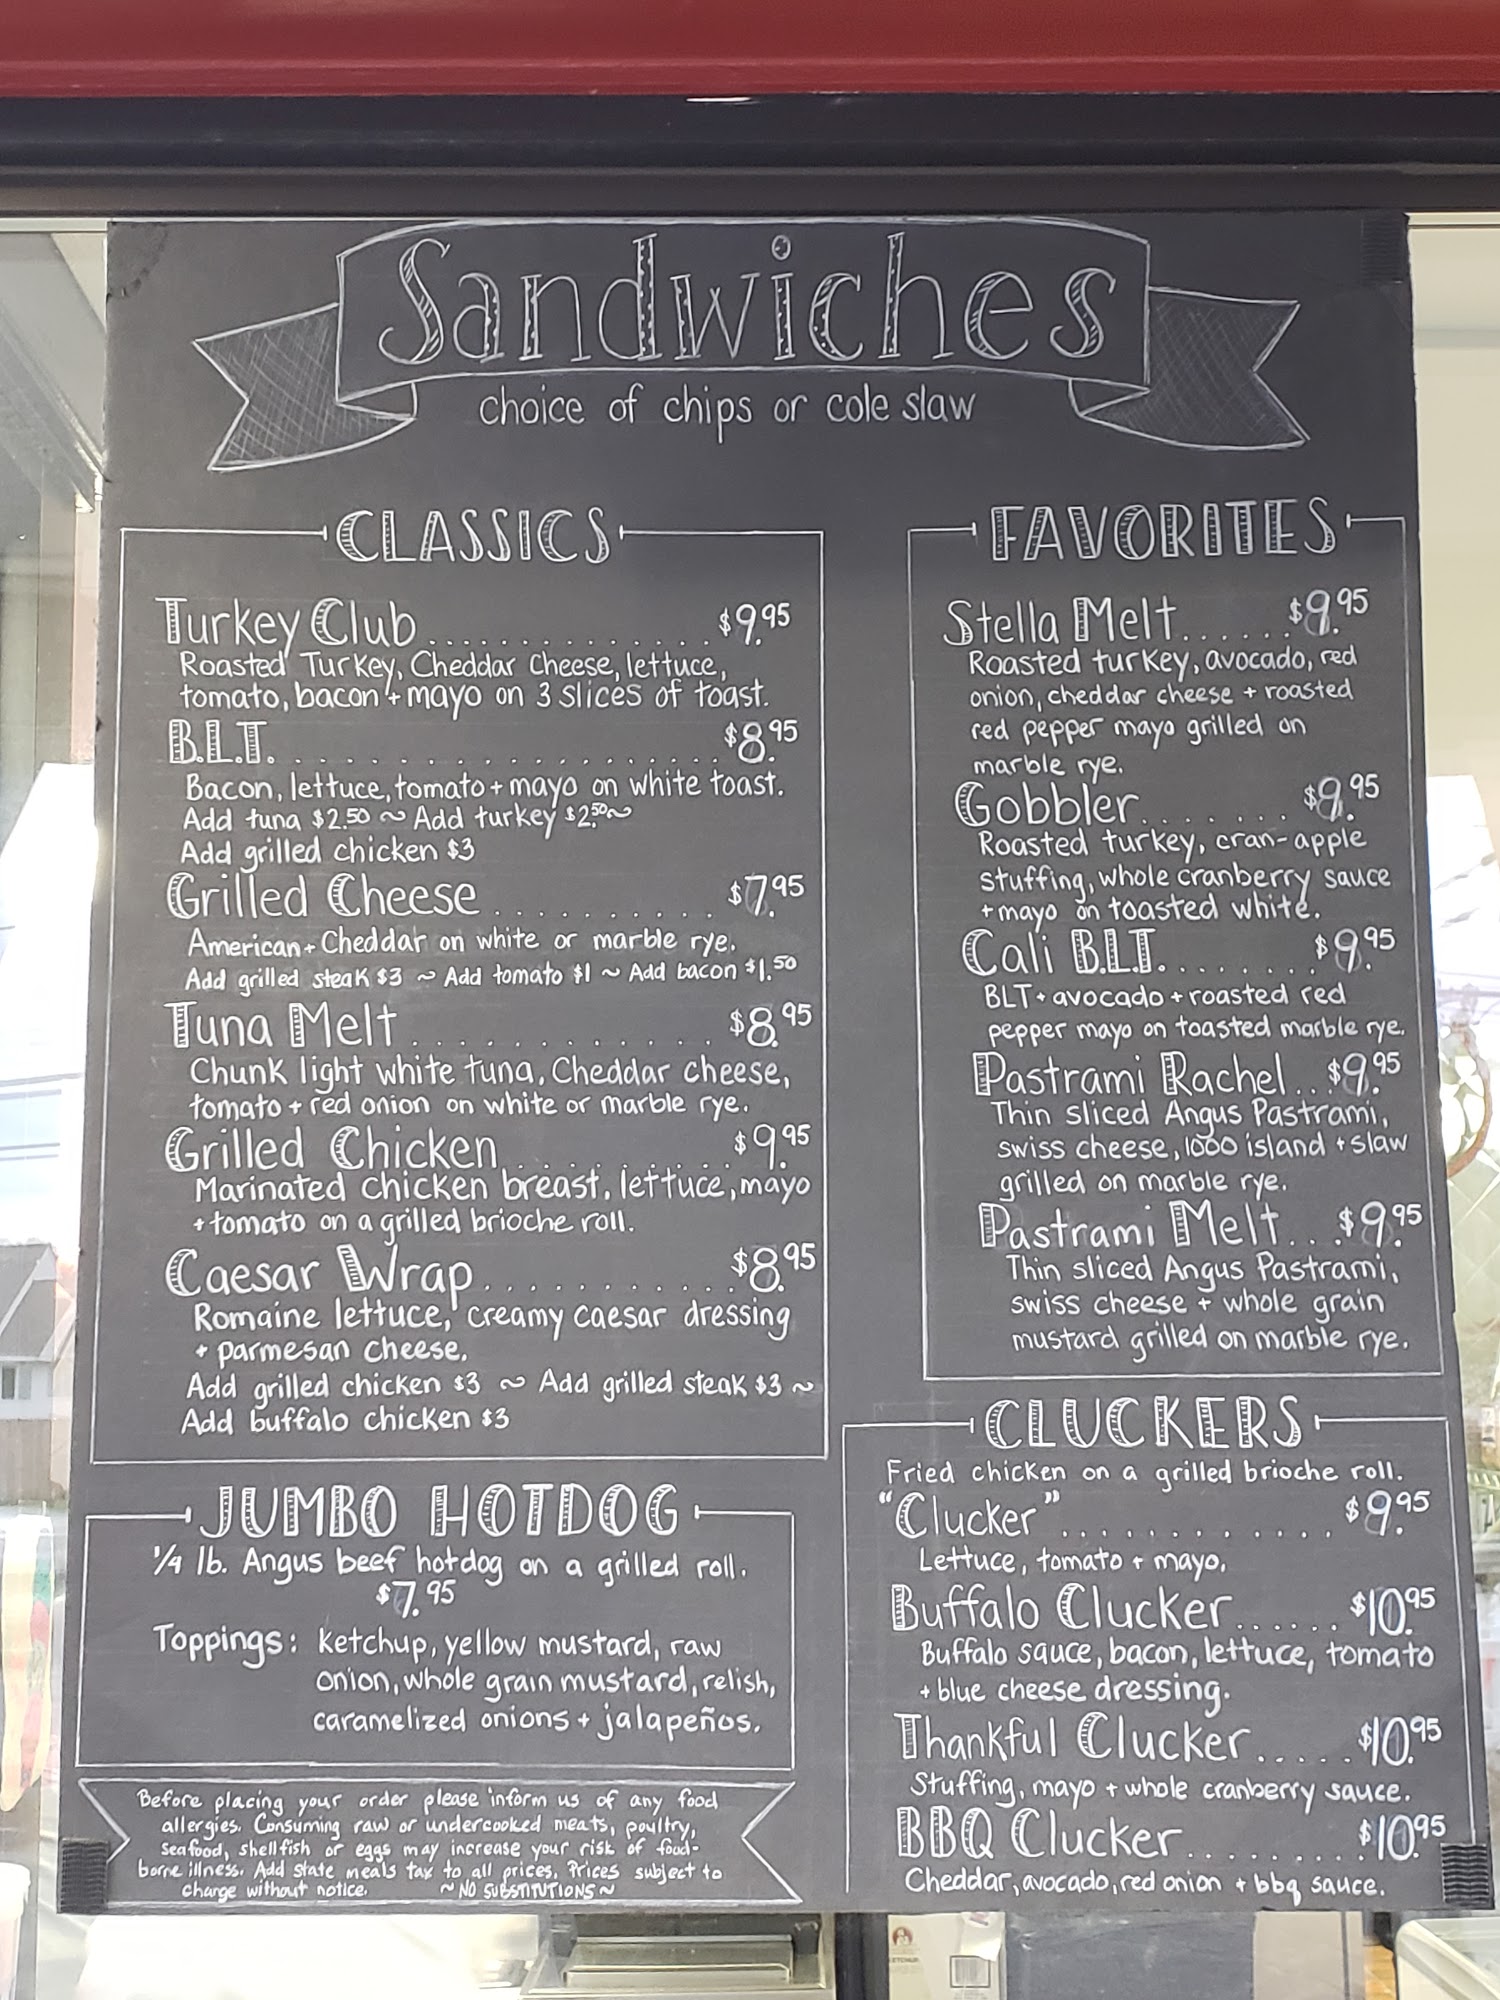 Sandwiches
choice of chips or cole slaw
CLASSICS
Turkey Club.................$9.95
Roasted Turkey, Cheddar Cheese, lettuce,
tomato, bacon + mayo on 3 slices of toast.
B.L.T...................$8.95
Bacon, lettuce, tomato + mayo on white toast.
Add tuna $2.50 ~ Add turkey $2.50 ~
Add grilled chicken $3
Grilled Cheese..........$7.95
American + Cheddar on white or marble rye.
Add grilled steak $3 ~ Add tomato $1 ~ Add bacon $1.50
Tuna Melt.............$8.95
Chunk light white tuna, Cheddar cheese,
tomato + red onion on white or marble rye.
Grilled Chicken.........$9.95
Marinated chicken breast, lettuce, mayo
+ tomato on a grilled brioche roll.
Caesar Wrap...........$8.95
Romaine lettuce, creamy caesar dressing
+ parmesan cheese.
Add grilled chicken $3 ~ Add grilled steak $3 ~
Add buffalo chicken $3
JUMBO HOTDOG
1/4 lb. Angus beef hotdog on a grilled roll.
$7.95
Toppings: ketchup, yellow mustard, raw
onion, whole grain mustard, relish,
caramelized onions + jalapeños.
Before placing your order please inform us of any food
allergies. Consuming raw or undercooked meats, poultry,
seafood, shellfish or eggs may increase your risk of food-
borne illness. Add state meals tax to all prices. Prices subject to
change without notice. ~ NO SUBSTITUTIONS ~
FAVORITES
Stella Melt......$9.95
Roasted turkey, avocado, red
onion, cheddar cheese + roasted
red pepper mayo grilled on
marble rye.
Gobbler.......$9.95
Roasted turkey, cran-apple
stuffing, whole cranberry sauce
+ mayo on toasted white.
Cali B.L.T........$9.95
BLT + avocado + roasted red
pepper mayo on toasted marble rye.
Pastrami Rachel..$9.95
Thin sliced Angus Pastrami,
swiss cheese, 1000 island + slaw
grilled on marble rye.
Pastrami Melt...$9.95
Thin sliced Angus Pastrami,
swiss cheese + whole grain
mustard grilled on marble rye.
CLUCKERS
Fried chicken on a grilled brioche roll.
"Clucker"............$9.95
Lettuce, tomato + mayo.
Buffalo Clucker......$10.95
Buffalo sauce, bacon, lettuce, tomato
+ blue cheese dressing.
Thankful Clucker.....$10.95
Stuffing, mayo + whole cranberry sauce.
BBQ Clucker.........$10.95
Cheddar, avocado, red onion + bbq sauce.
KETCHUP